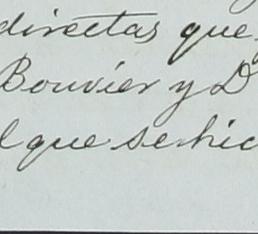 directas que
Bouvier y D
l que se hic